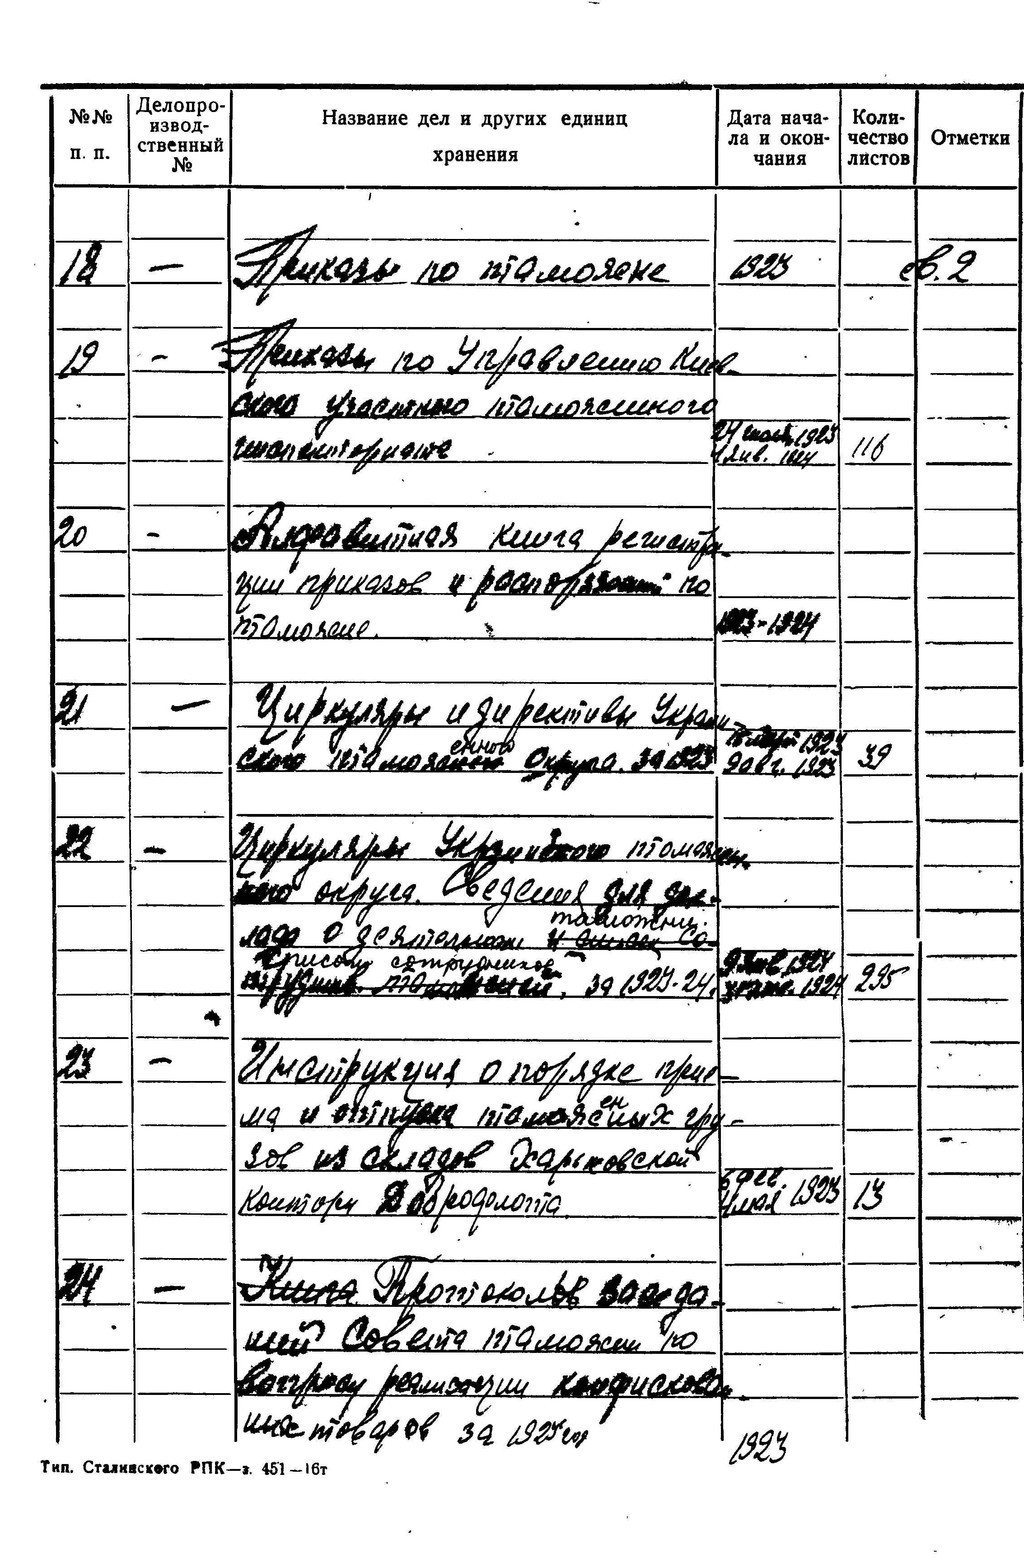 №№ п. п.
Делопро-
извод-
ственный
№
Название дел и других единиц
хранения
Дата нача-
ла и окон-
чания
Коли-
чество
листов
Отметки
18 — Приказы по таможне 1923 св. 2
19 - Приказы по Управлению Киев-
ского участкого таможенного
инспекториата 1923 116
1 янв. 1924
20 - Алфавитная книга регистра-
ции приказов и распоряжений по
таможне. 1923-1924
21 — Циркуляры и директивы Украин-
ского таможенного Округа. за 1923 1923 39
9 авг. 1923
22 — Циркуляры Украинского таможен-
ного округа. Сведения для док-
лада о деятельности таможни.
Списки сотрудников
за 1923-24. 1924 295
23 — Инструкция о порядке прие-
ма и отпуска таможенных гру-
зов из складов Харьковской
конторы Доброфлота. 6 фев.
4 мая 1923 13
24 — Книга Протоколов заседа-
ний Совета таможни по
вопросу реализации конфискован-
ных товаров за 1923 год 1923
Тип. Сталинского РПК—з. 451—16т